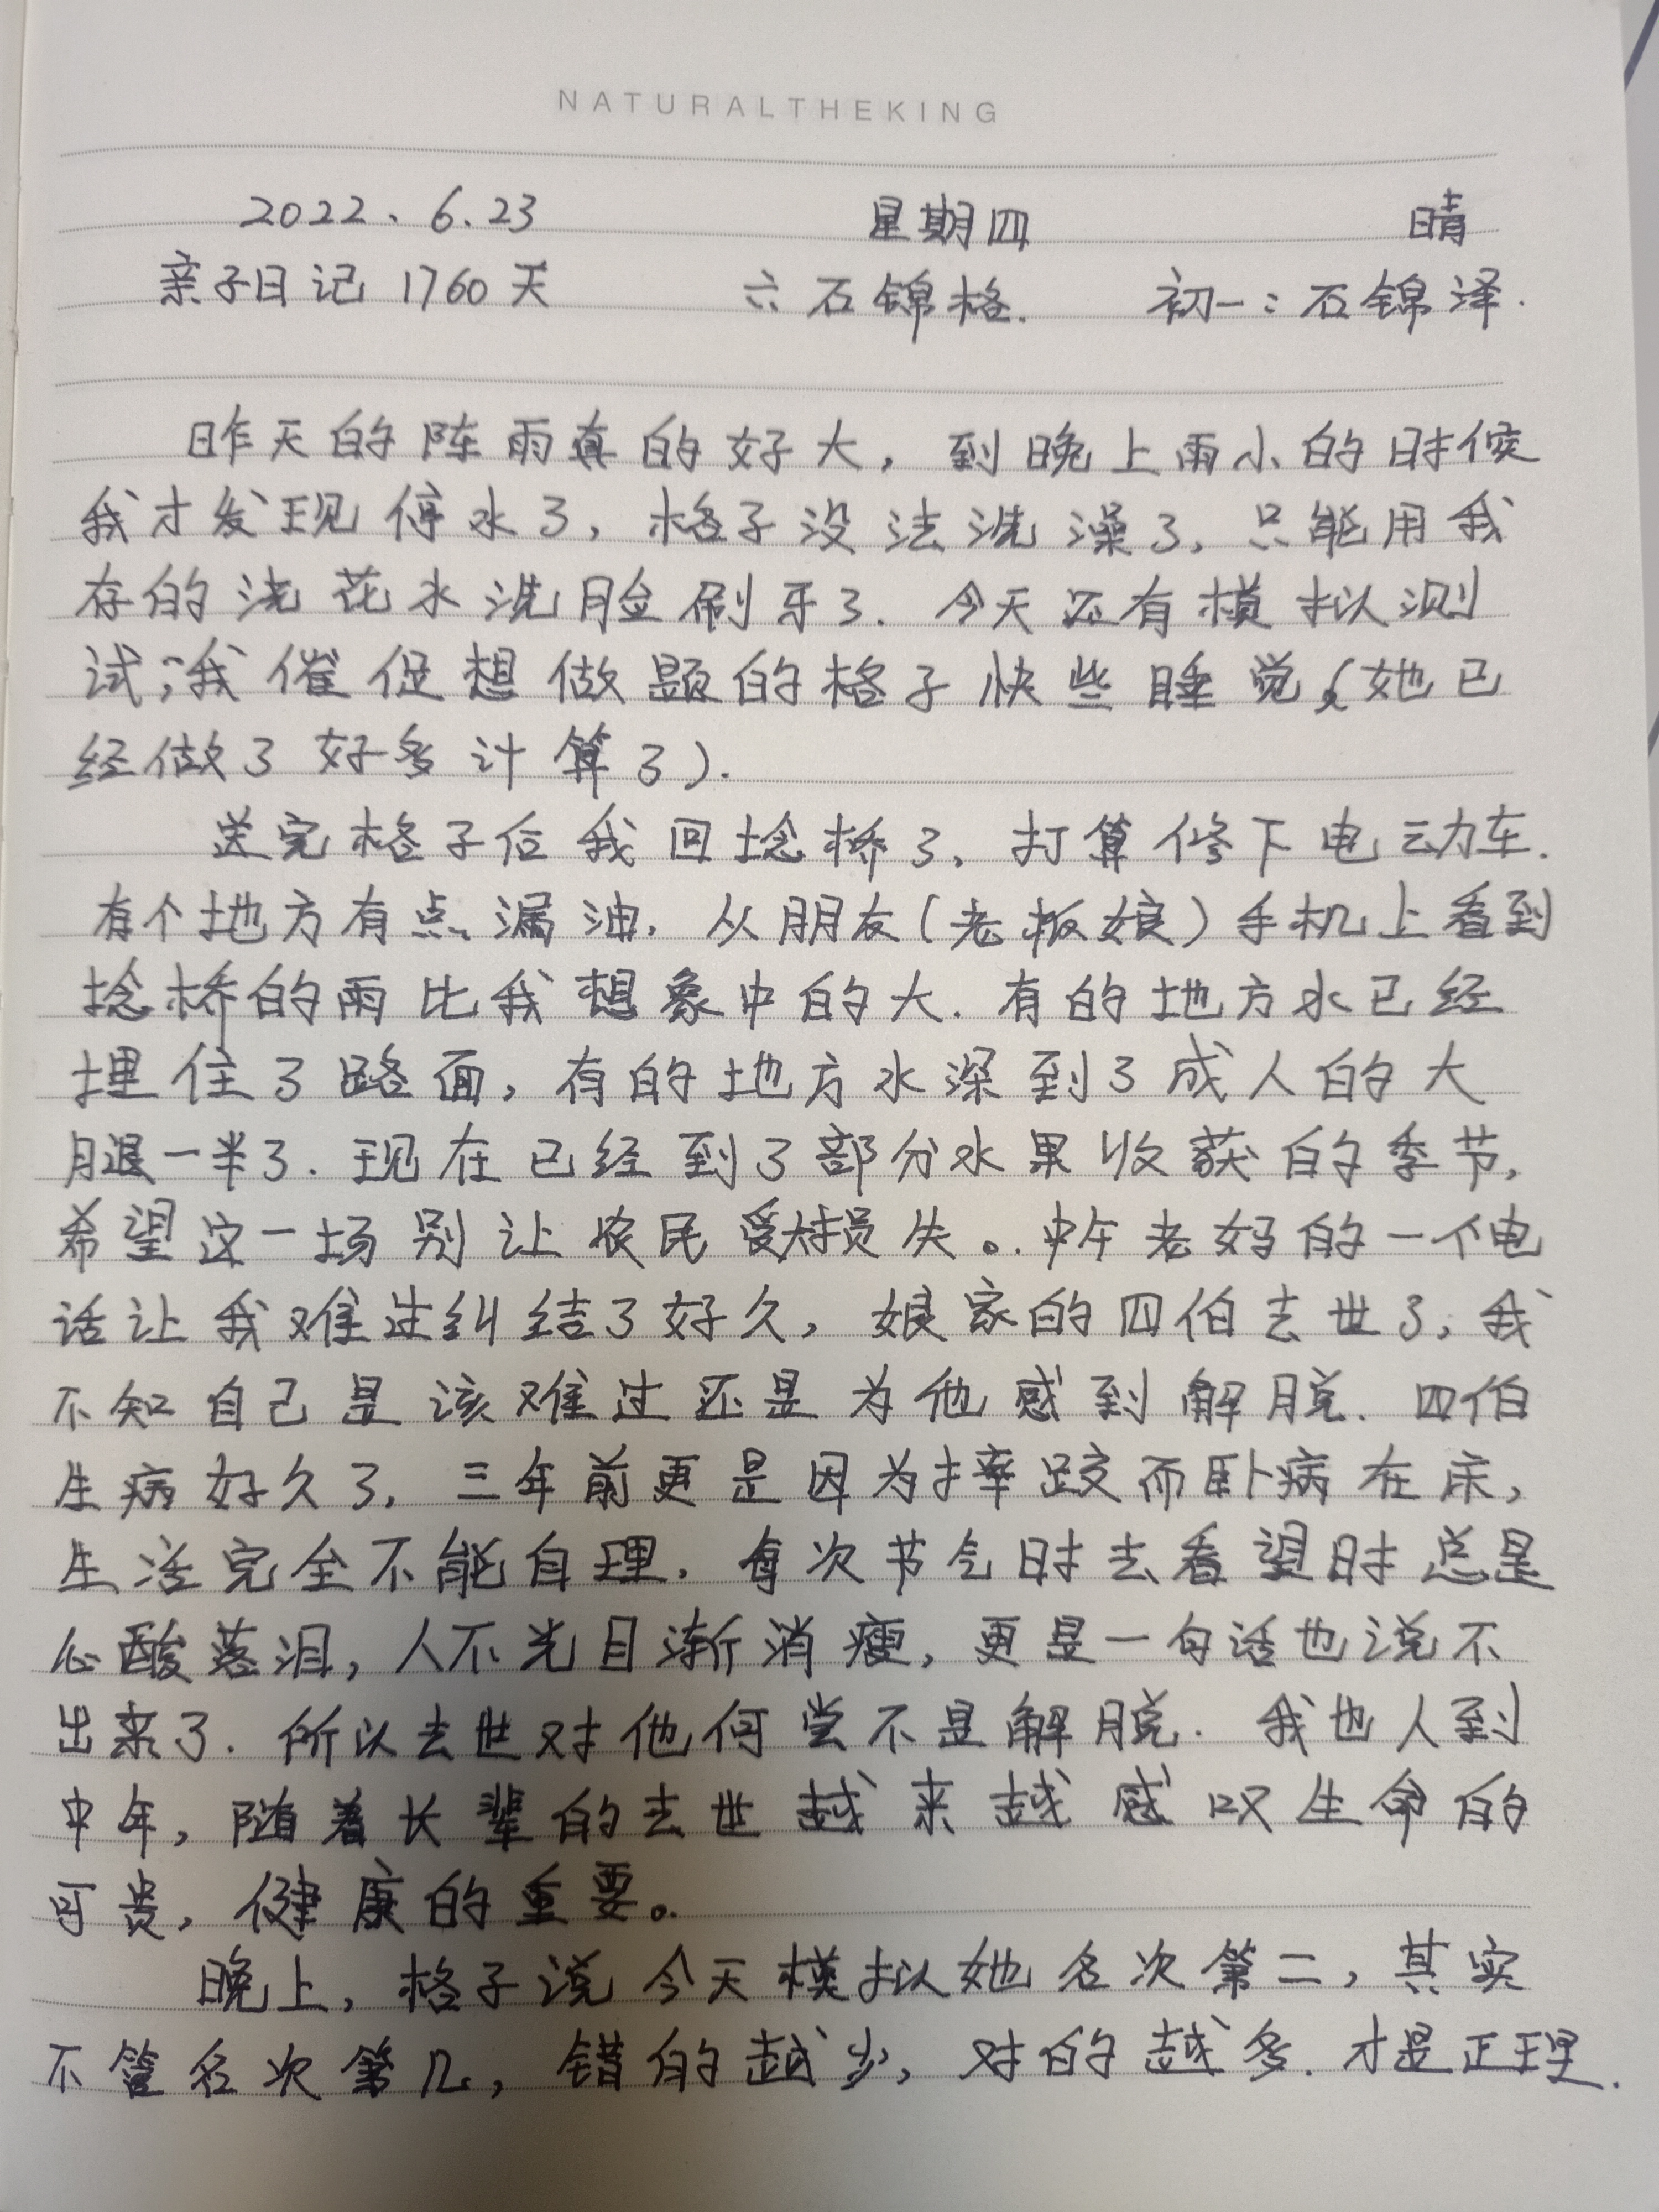 NATURALTHEKING
2022、6.23 星期四 晴
亲子日记 1760天 六 石锦格. 初一:石锦泽.
昨天的阵雨真的好大,到晚上雨小的时候
我才发现停水了,格子没法洗澡了,只能用我
存的浇花水洗脸刷牙了.今天还有模拟测
试;我催促想做题的格子快些睡觉(她已
经做了好多计算了).
送完格子后我回埝桥了,打算修下电动车.
有个地方有点漏油,从朋友(老板娘)手机上看到
埝桥的雨比我想象中的大.有的地方水已经
埋住了路面,有的地方水深到了成人的大
腿一半了.现在已经到了部分水果收获的季节,
希望这一场别让农民受大损失。.中午老妈的一个电
话让我难过纠结了好久,娘家的四伯去世了,我
不知自己是该难过还是为他感到解脱.四伯
生病好久了,三年前更是因为摔跤而卧病在床,
生活完全不能自理.每次节气时去看望时总是
心酸落泪,人不光日渐消瘦,更是一句话也说不
出来了.所以去世对他何尝不是解脱.我也人到
中年,随着长辈的去世越来越感叹生命的
可贵,健康的重要。
晚上,格子说今天模拟她名次第二,其实
不管名次第几,错的越少,对的越多.才是正理.